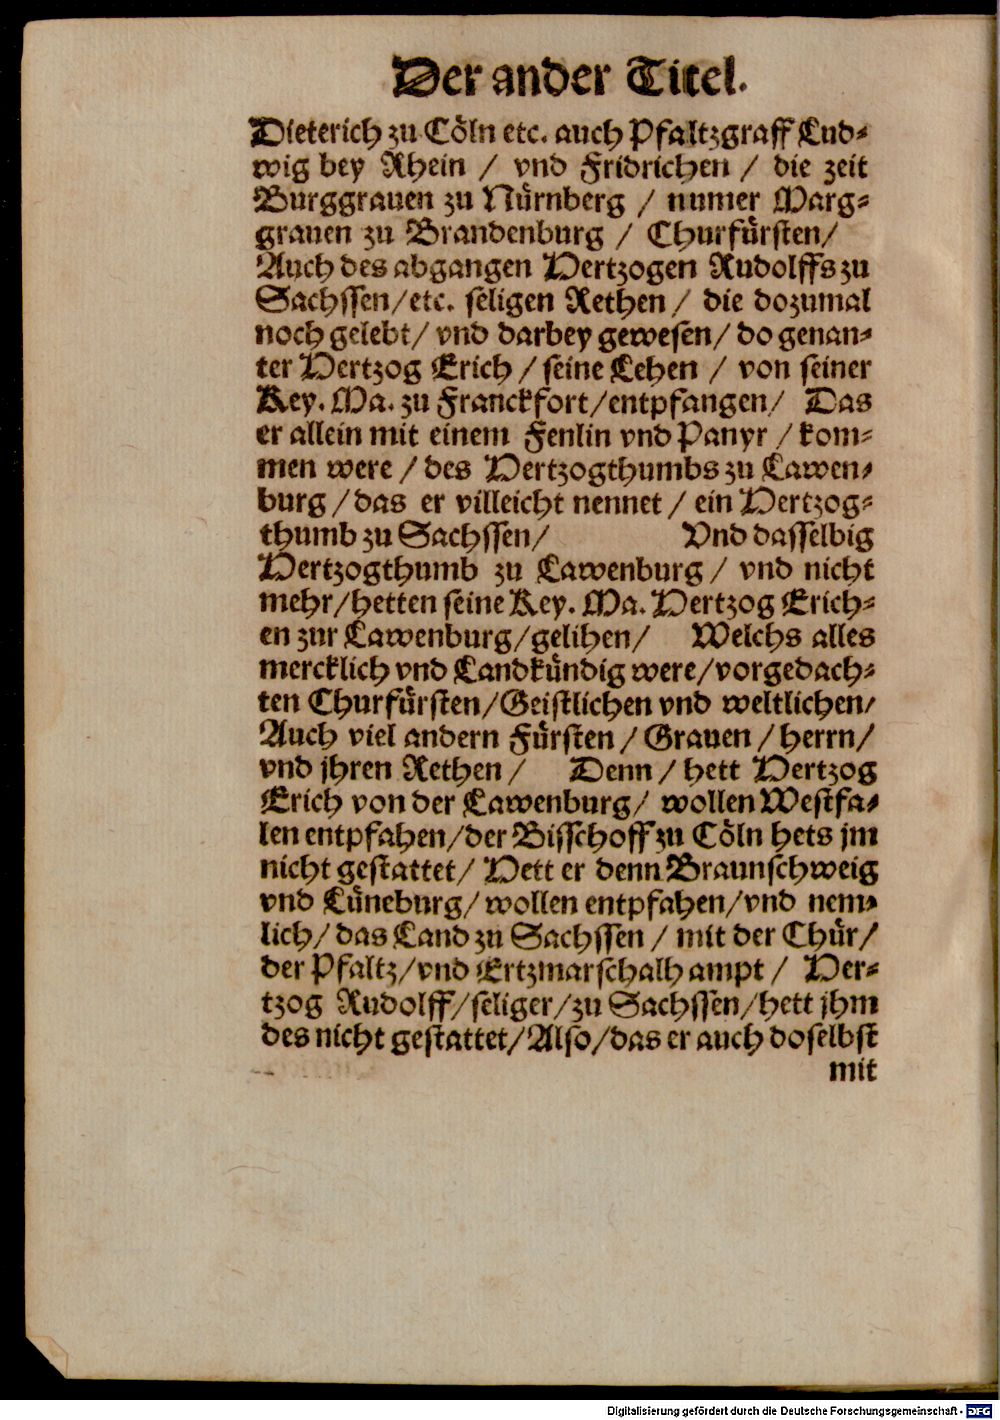 Der ander Titel.
Dieterich zu Cöln etc. auch Pfaltzgraff Lud-
wig bey Rhein / vnd Fridrichen / die zeit
Burggrauen zu Nürnberg / numer Marg-
grauen zu Brandenburg / Churfürsten/
Auch des abgangen Hertzogen Rudolffs zu
Sachssen/etc. seligen Rethen / die dozumal
noch gelebt/ vnd darbey gewesen/ do genan-
ter Hertzog Erich / seine Lehen / von seiner
Key. Ma. zu Franckfort/entpfangen/ Das
er allein mit einem Fenlin vnd Panyr / kom-
men were / des Hertzogthumbs zu Lawen-
burg /das er villeicht nennet / ein Hertzog-
thumb zu Sachssen/ Vnd dasselbig
Hertzogthumb zu Lawenburg / vnd nicht
mehr/hetten seine Key. Ma. Hertzog Erich-
en zur Lawenburg/gelihen/ Welchs alles
mercklich vnd Landkündig were/vorgedach-
ten Churfürsten/Geistlichen vnd weltlichen/
Auch viel andern Fürsten / Grauen / herrn/
vnd jhren Rethen / Denn / hett Hertzog
Erich von der Lawenburg/ wollen Westfa-
len entpfahen/der Bisschoff zu Cöln hets jm
nicht gestattet/ Hett er denn Braunschweig
vnd Lüneburg/wollen entpfahen/vnd nem-
lich/ das Land zu Sachssen / mit der Chür/
der Pfaltz/vnd Ertzmarschalh ampt / Her-
tzog Rudolff/seliger/zu Sachssen/hett jhm
des nicht gestattet/Also/das er auch doselbst
mit
Digitalisierung gefördert durch die Deutsche Forschungsgemeinschaft - DFG